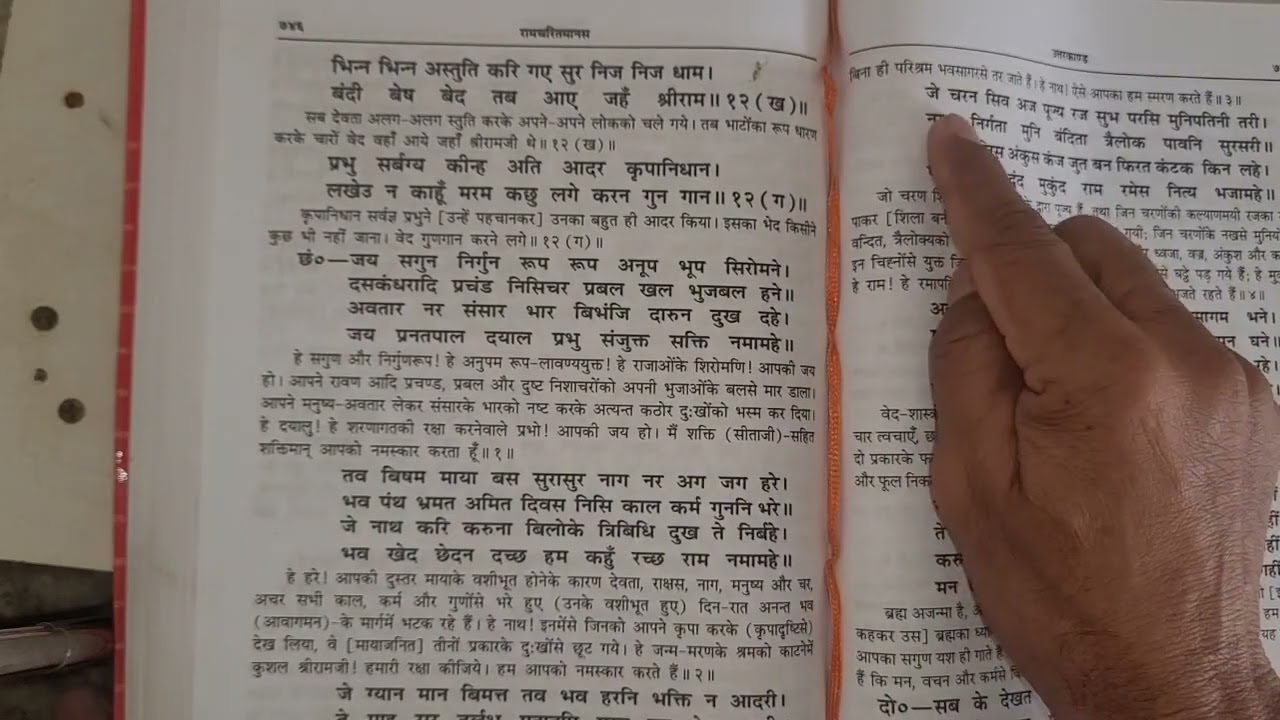 ७४६
रामचरितमानस
भिन्न भिन्न अस्तुति करि गए सुर निज निज धाम।
बंदी बेष बेद तब आए जहँ श्रीराम॥ १२ (ख)॥
सब देवता अलग-अलग स्तुति करके अपने-अपने लोकको चले गये। तब भाटोंका रूप धारण
करके चारों वेद वहाँ आये जहाँ श्रीरामजी थे॥ १२ (ख)॥
प्रभु सर्बग्य कीन्ह अति आदर कृपानिधान।
लखेउ न काहूँ मरम कछु लगे करन गुन गान॥ १२ (ग)॥
कृपानिधान सर्वज्ञ प्रभुने [उन्हें पहचानकर] उनका बहुत ही आदर किया। इसका भेद किसीने
कुछ भी नहीं जाना। वेद गुणगान करने लगे॥ १२ (ग)॥
छं०—जय सगुन निर्गुन रूप रूप अनूप भूप सिरोमने।
दसकंधरादि प्रचंड निसिचर प्रबल खल भुजबल हने॥
अवतार नर संसार भार बिभंजि दारुन दुख दहे।
जय प्रनतपाल दयाल प्रभु संजुक्त सक्ति नमामहे॥
हे सगुण और निर्गुणरूप! हे अनुपम रूप-लावण्ययुक्त! हे राजाओंके शिरोमणि! आपकी जय
हो। आपने रावण आदि प्रचण्ड, प्रबल और दुष्ट निशाचरोंको अपनी भुजाओंके बलसे मार डाला।
आपने मनुष्य-अवतार लेकर संसारके भारको नष्ट करके अत्यन्त कठोर दुःखोंको भस्म कर दिया।
हे दयालु! हे शरणागतकी रक्षा करनेवाले प्रभो! आपकी जय हो। मैं शक्ति (सीताजी)-सहित
शक्तिमान् आपको नमस्कार करता हूँ॥ १॥
तव बिषम माया बस सुरासुर नाग नर अग जग हरे।
भव पंथ भ्रमत अमित दिवस निसि काल कर्म गुननि भरे॥
जे नाथ करि करुना बिलोके त्रिबिधि दुख ते निर्बहे।
भव खेद छेदन दच्छ हम कहुँ रच्छ राम नमामहे॥
हे हरे! आपकी दुस्तर मायाके वशीभूत होनेके कारण देवता, राक्षस, नाग, मनुष्य और चर,
अचर सभी काल, कर्म और गुणोंसे भरे हुए (उनके वशीभूत हुए) दिन-रात अनन्त भव
(आवागमन)-के मार्गमें भटक रहे हैं। हे नाथ! इनमेंसे जिनको आपने कृपा करके (कृपादृष्टिसे)
देख लिया, वे [मायाजनित] तीनों प्रकारके दुःखोंसे छूट गये। हे जन्म-मरणके श्रमको काटनेमें
कुशल श्रीरामजी! हमारी रक्षा कीजिये। हम आपको नमस्कार करते हैं॥ २॥
जे ग्यान मान बिमत्त तव भव हरनि भक्ति न आदरी।
उत्तरकाण्ड
बिना ही परिश्रम भवसागरसे तर जाते हैं। हे नाथ! ऐसे आपका हम स्मरण करते हैं॥ ३॥
जे चरन सिव अज पूज्य रज सुभ परसि मुनिपतिनी तरी।
निर्गता मुनि बंदिता त्रैलोक पावनि सुरसरी॥
अंकुस कंज जुत बन फिरत कंटक किन लहे।
मुकुंद राम रमेस नित्य भजामहे॥
जो चरण
पूज्य हैं, तथा जिन चरणोंकी कल्याणमयी रजका
पाकर [शिला
गयी; जिन चरणोंके नखसे मुनियों
वन्दित, त्रैलोक्यको
ध्वजा, वज्र, अंकुश और
इन चिह्नोंसे युक्त
से घट्ठे पड़ गये हैं; हे
हे राम! हे
रहते हैं॥ ४॥
भने।
घने॥
वेद-शास्त्र
चार त्वचाएँ,
दो प्रकारके
और फूल
ते
मन
ब्रह्म अजन्मा है,
कहकर उस] ब्रह्मका
आपका सगुण यश ही गाते
हैं कि मन, वचन और कर्मसे
दो०—सब के देखत